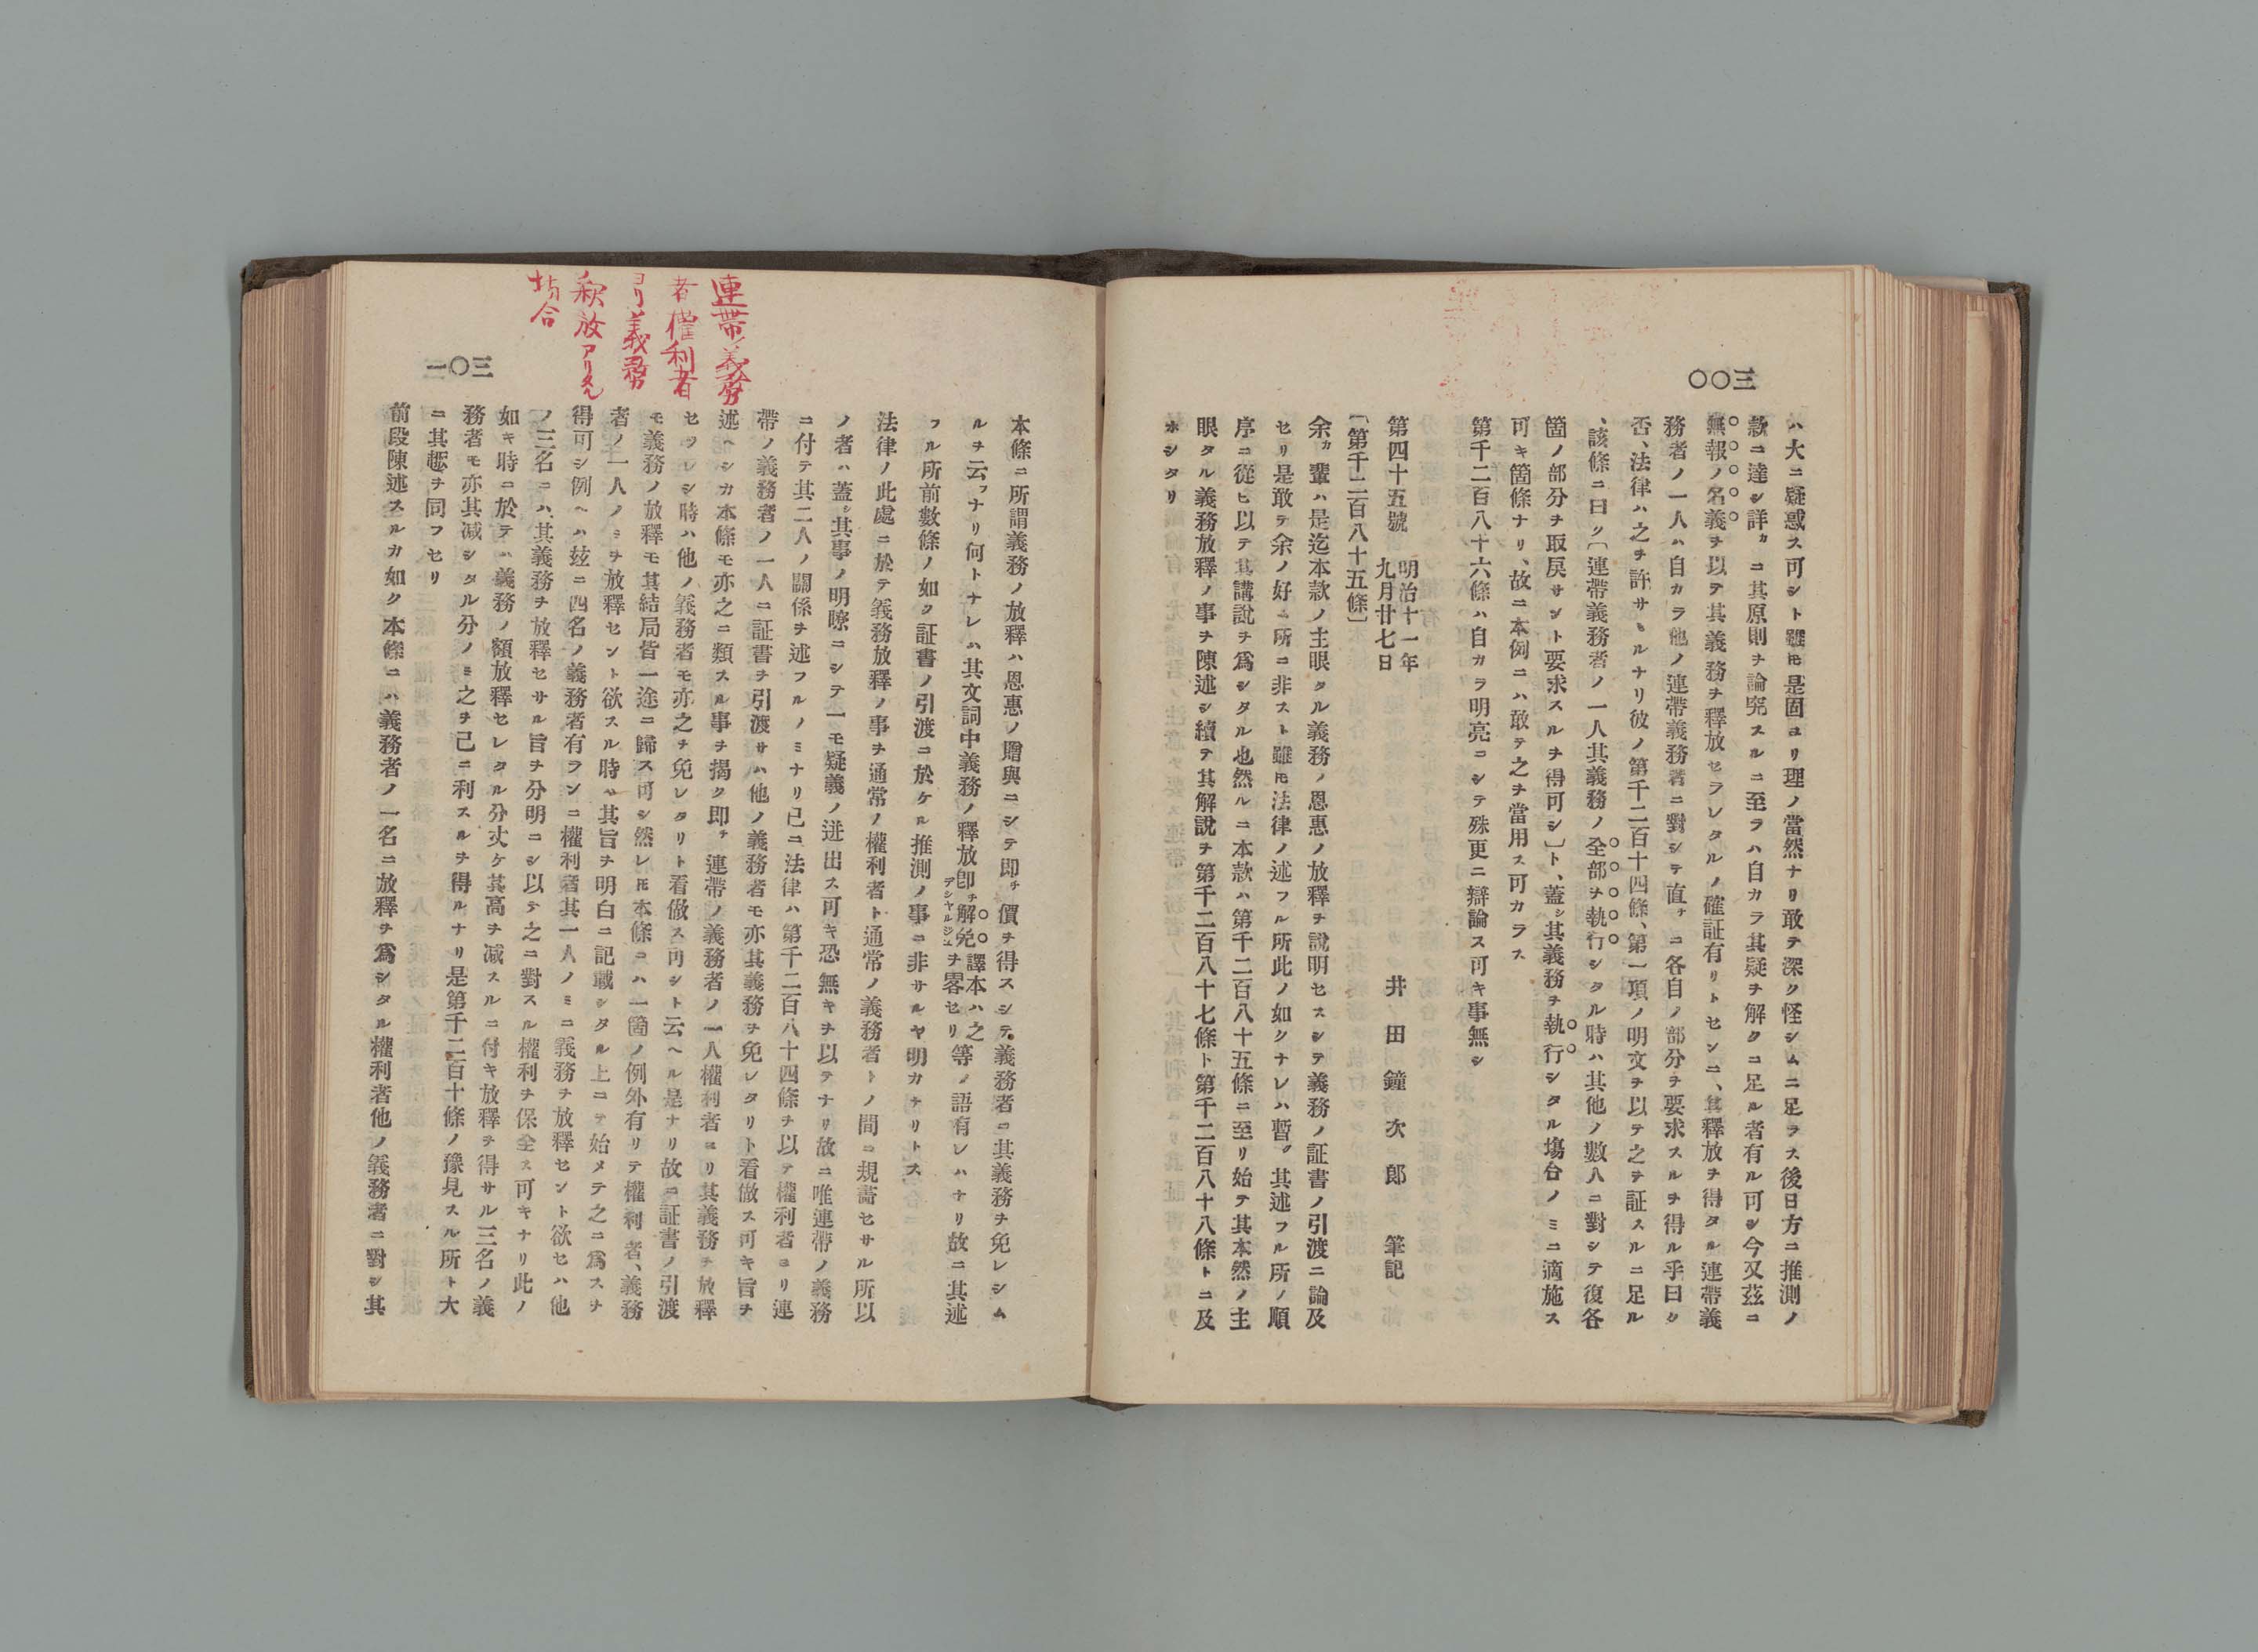 三〇〇
ハ大ニ疑惑ス可シト雖𪜈是固ヨリ理ノ當然ナリ敢テ深ク怪シムニ足ラス後日方ニ推測ノ
欵ニ達シ詳カニ其原則ヲ論究スルニ至ラハ自カラ其疑ヲ解クニ足ル者有ル可シ今又茲ニ
無報ノ名義ヲ以テ其義務ヲ釋放セラレタルノ確証有リトセンニ、其釋放ヲ得タル連帶義
務者ノ一人ハ自カラ他ノ連帶義務者ニ對シテ直チニ各自ノ部分ヲ要求スルヲ得ル乎曰ク
否、法律ハ之ヲ許サヽルナリ彼ノ第千二百十四條、第一項ノ明文ヲ以テ之ヲ証スルニ足ル
、該條ニ曰ク〔連帶義務者ノ一人其義務ノ全部ヲ執行シタル時ハ其他ノ數人ニ對シテ復各
箇ノ部分ヲ取戻サント要求スルヲ得可シ〕ト、蓋シ其義務ヲ執行シタル塲合ノミニ適施ス
可キ箇條ナリ、故ニ本例ニハ敢テ之ヲ當用ス可カラス
第千二百八十六條ハ自カラ明亮ニシテ殊更ニ辯論ス可キ事無シ
第四十五號 明治十一年九月廿七日 井田鐘次郎 筆記
〔第千二百八十五條〕
余カ輩ハ是迄本款ノ主眼タル義務ノ恩惠ノ放釋ヲ說明セスシテ義務ノ証書ノ引渡ニ論及
セリ是敢テ余ノ好ム所ニ非スト雖𪜈法律ノ述フル所此ノ如クナレハ暫ク其述フル所ノ順
序ニ從ヒ以テ其講說ヲ爲シタル也然ルニ本款ハ第千二百八十五條ニ至リ始テ其本然ノ主
眼タル義務放釋ノ事ヲ陳述シ續テ其解說ヲ第千二百八十七條ト第千二百八十八條トニ及
ホシタリ
三〇一
連帶ノ義務
者權利者
ヨリ義務
釈放アリタル
場合
本條ニ所謂義務ノ放釋ハ恩惠ノ贈與ニシテ即チ價ヲ得スシテ義務者ニ其義務ヲ免レシム
ルヲ云フナリ何トナレハ其文詞中義務ノ釋放卽チ解免デシヤルジユ譯本ハ之ヲ畧セリ等ノ語有レハナリ故ニ其述
フル所前數條ノ如ク証書ノ引渡ニ於ケル推測ノ事ニ非サルヤ明カナリトス
法律ノ此處ニ於テ義務放釋ノ事ヲ通常ノ權利者ト通常ノ義務者トノ間ニ規畫セサル所以
ノ者ハ蓋シ其事ノ明瞭ニシテ一モ疑義ノ迸出ス可キ恐無キヲ以テナリ故ニ唯連帶ノ義務
ニ付テ其二人ノ關係ヲ述フルノミナリ已ニ法律ハ第千二百八十四條ヲ以テ權利者ヨリ連
帶ノ義務者ノ一人ニ証書ヲ引渡サハ他ノ義務者モ亦其義務ヲ免レタリト看做ス可キ旨ヲ
述ヘシカ本條モ亦之ニ類スル事ヲ揭ク即チ連帶ノ義務者ノ一人權利者ヨリ其義務ヲ放釋
セラレシ時ハ他ノ義務者モ亦之ヲ免レタリト看做ス可シト云ヘル是ナリ故ニ証書ノ引渡
モ義務ノ放釋モ其結局皆一途ニ歸ス可シ然レ𪜈本條ニハ一箇ノ例外有リテ權利者、義務
者ノ一人ノミヲ放釋セント欲スル時ハ其旨ヲ明白ニ記載シタル上ニテ始メテ之ニ爲スヲ
得可シ例ヘハ玆ニ四名ノ義務者有ランニ權利者其一人ノミニ義務ヲ放釋セント欲セハ他
ノ三名ニハ其義務ヲ放釋セサル旨ヲ分明ニシ以テ之ニ對スル權利ヲ保全ス可キナリ此ノ
如キ時ニ於テハ義務ノ額放釋セレタル分丈ケ其高ヲ減スルニ付キ放釋ヲ得サル三名ノ義
務者モ亦其減シタル分ノミ之ヲ己ニ利スルヲ得ルナリ是第千二百十條ノ豫見スル所ト大
ニ其趣ヲ同フセリ
前段陳述スルカ如ク本條ニハ義務者ノ一名ニ放釋ヲ爲シタル權利者他ノ義務者ニ對シ其